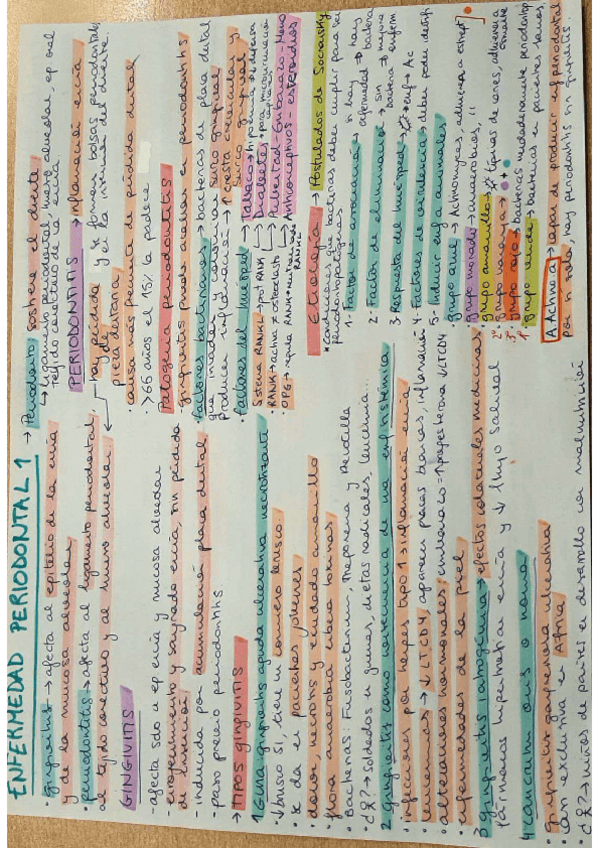 ENFERMEDAD PERIODONTAL 1
• gingivitis → afecta al epitelio de la encía
y de la mucosa alveolar
• periodontitis → afecta al ligamento periodontal,
al tejido conectivo y al hueso alveolar.
GINGIVITIS
- afecta sólo a ep encía y mucosa alveolar
- enrojecimiento y sangrado encía, sin pérdida
de inserción
- inducida por acumulación placa dental
- paso previo periodontitis
→ TIPOS GINGIVITIS
1 Guna gingivitis aguda ulcerativa necrotizante
↓ brusco SI, tiene un comienzo brusco
• se da en pacientes jóvenes
• dolor, necrosis y exudado amarillo
• flora anaerobia
• Bacterias: Fusobacterium, Treponema y Prevotella
• ¿Q? → soldados en guerras, dietas radicales, leucemia...
2 gingivitis como consecuencia de una enf sistémica
• infecciones por herpes tipo 1 → inflamación encía
• leucemias → ↓ LTCD4, aparecen placas blancas, inflamación
• alteraciones hormonales; embarazo = ↑ progesterona ↓ LTCD4
• enfermedades de la piel
3 gingivitis iatrogénica → efectos colaterales medicinas
fármacos hipertrofian encía y ↓ flujo salival
4 cancrum oris o noma
• gingivitis gangrenosa ulcerativa
• casi exclusiva en África
• ¿Q? → niños de países en desarrollo con malnutrición
→ Periodonto: sostiene el diente
↳ ligamento periodontal, hueso alveolar, ep oral
tejido conectivo de la encía
PERIODONTITIS → inflamación encía
hay pérdida y se forman bolsas periodontales
de en la inserción del diente.
pieza dentaria
• causa más frecuente de pérdida dental
• >66 años el 15% la padece
Patogenia periodontitis
gingivitis puede acabar en periodontitis
• factores bacterianos → bacterias de placa dental
que invaden y colonizan surco gingival
Producen inflamación → ↑ cresta crevicular y
surco gingival
• factores del huésped → Tabaco → hipoxemia → ↓ defensas
Sistema RANKL - opg - RANK
Diabetes
RANK → activa ≠ osteoclasto
Pubertad - Embarazo - Meno
OPG → regula RANK
Anticonceptivos - esteroides
RANKL
Etiología → Postulados de Socransky
• condiciones que bacterias deben cumplir para ser
periodontopatógenas
1. Factor de asociación → si hay enfermedad → hay bacteria
2. Factor de eliminación → sin bacteria → mejora enferm
3. Respuesta del huésped → enf → Ac
4. Factores de virulencia → deber poder identif
5. Inducir enf a animales
grupo azul → Actinomyces, adherencia a estrept
• grupo morado → anaerobios, "
grupo amarillo
2º grupo naranja →
3º grupo rojo → bacterias verdaderamente periodontop
grupo verde → bacterias en pacientes sanos
A. Actino a → capaz de producir enf periodontal
por sí sola, hay periodontitis sin gingivitis.